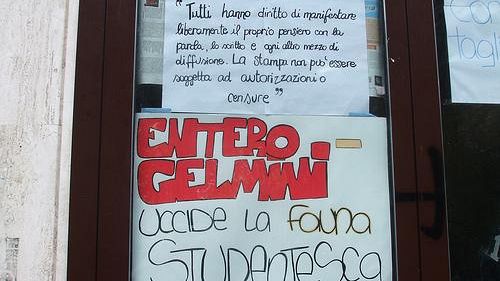 "Tutti hanno diritto di manifestare
liberamente il proprio pensiero con la
parola, lo scritto e ogni altro mezzo di
diffusione. La stampa non può essere
soggetta ad autorizzazioni o
censure"
ENTERO-
GELMINI
UCCIDE LA fauna
STUDENTESCA